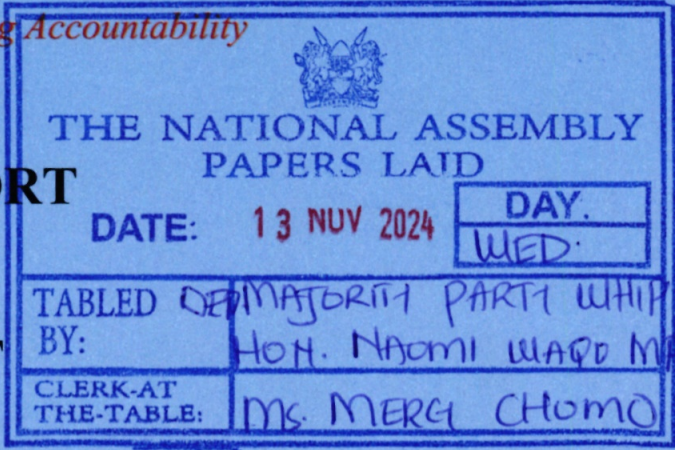 g Accountability
THE NATIONAL ASSEMBLY
PAPERS LAID
ORT
DATE: 13 NOV 2024
DAY.
WED.
TABLED BY: DEP MAJORITY PARTY WHIP
HON. NAOMI WAQO
CLERK-AT THE-TABLE: Ms. MERCY CHUMO